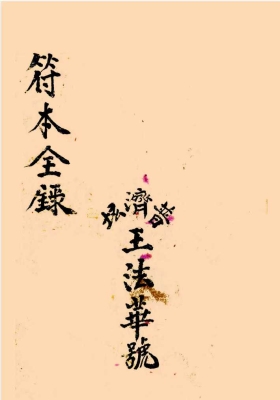 普濟
王法華號
符本全錄